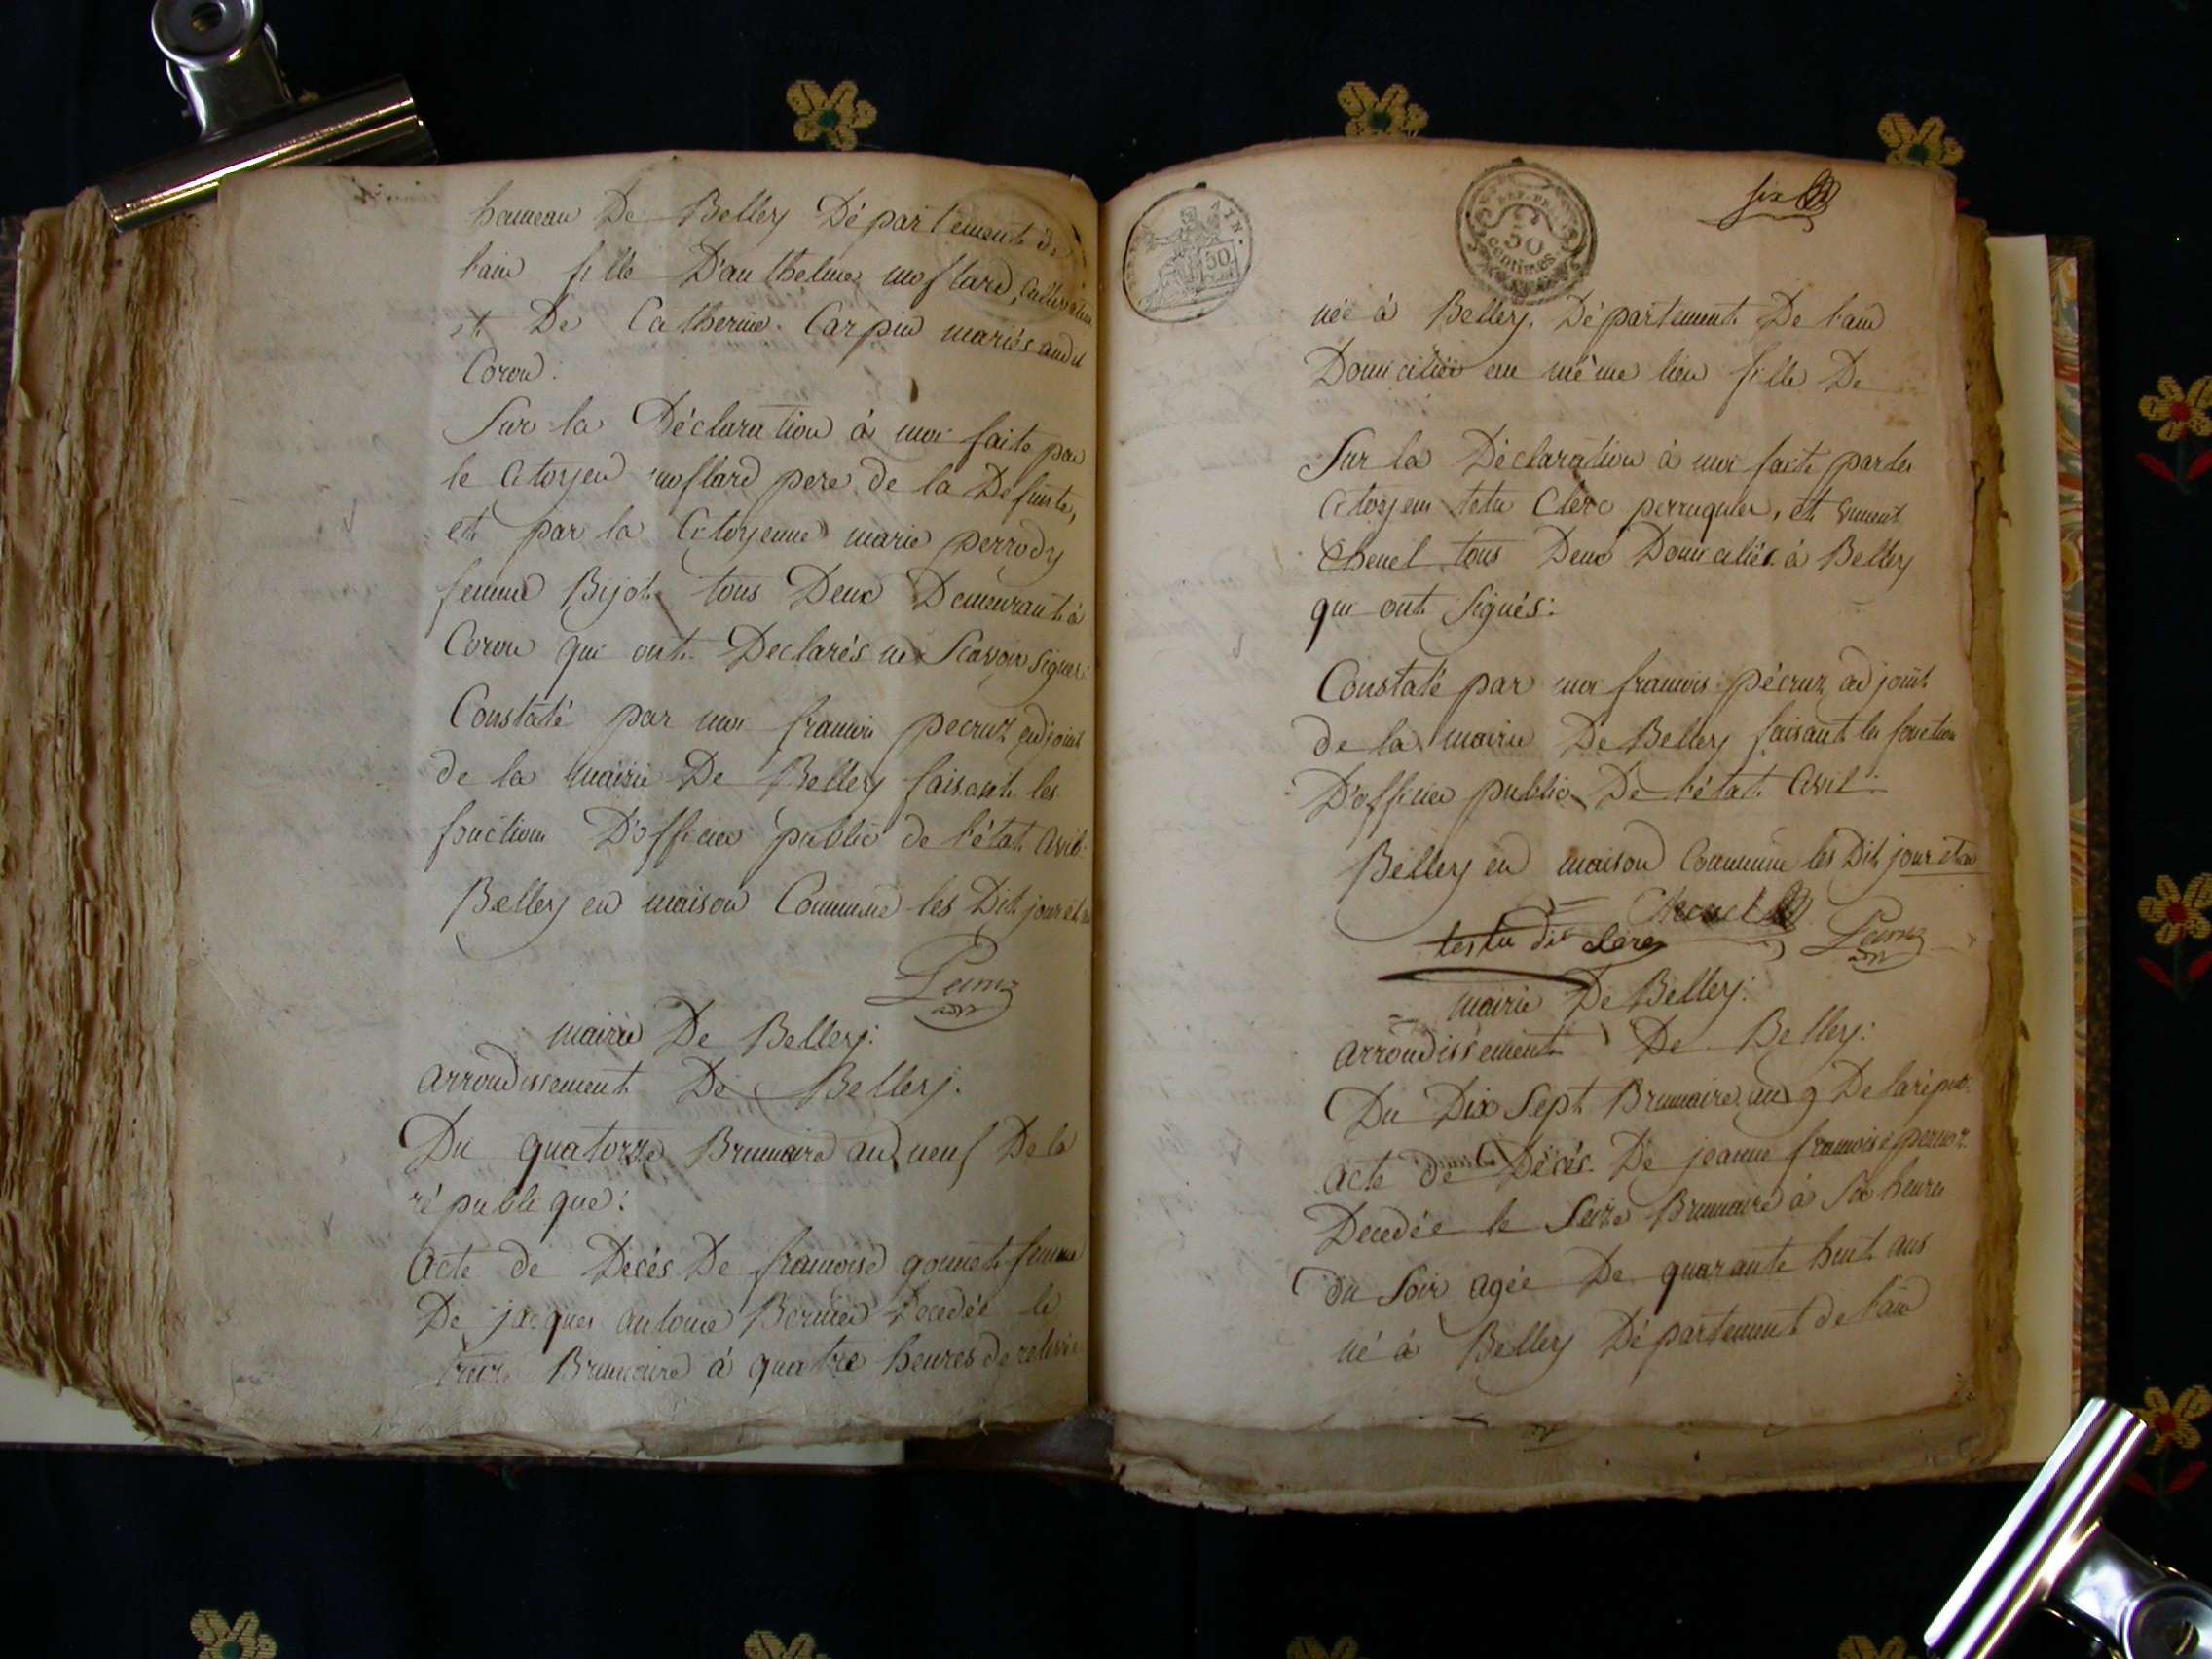 hameau De Belley Département de
l'ain fille D'anthelme moflard, Cultivateur
et De Catherine Carpin mariés audit
Coron.
Sur la Déclaration à moi faite par
le Citoyen moflard pere de la Defunte,
et par la Citoyenne marie perrody
femme Bijot tous Deux Demeurant à
Coron qui ont Declarés ne Scavoir signer:
Constaté par moi francois pecruz adjoint
de la mairie De Belley faisant les
fonctions D'officier public de l'état Civil.
Belley en maison Commune les Dit jour et an
Pecruz
mairie De Belley:
arrondissement De Belley.
Du quatorze Brumaire an neuf De la
république:
acte de Decés De francoise gonnet femme
De jacques antoine Bernier Decedée le
treize Brumaire à quatre heures de relevée
AIN.
50
REP. FRA.
50
centimes
six
née à Belley, Département De l'ain
Domiciliée au même lieu fille De
Sur la Déclaration à moi faite par les
Citoyens tetu Clerc perruquier, et vincent
Chenel tous Deux Domiciliés à Belley
qui ont signés:
Constaté par moi francois pécruz adjoint
de la mairie De Belley faisant les fonction
D'officier public De l'état Civil.
Belley en maison Commune les Dit jour et an
Chenel
testu dit Clerc Pecruz
mairie De Belley:
arrondissement De Belley:
Du Dix Sept Brumaire an 9 De la répub.
acte de Décés De jeanne francoise
Decedée le Seize Brumaire à Six heures
du Soir agée De quarante huit ans
né à Belley Département de l'ain